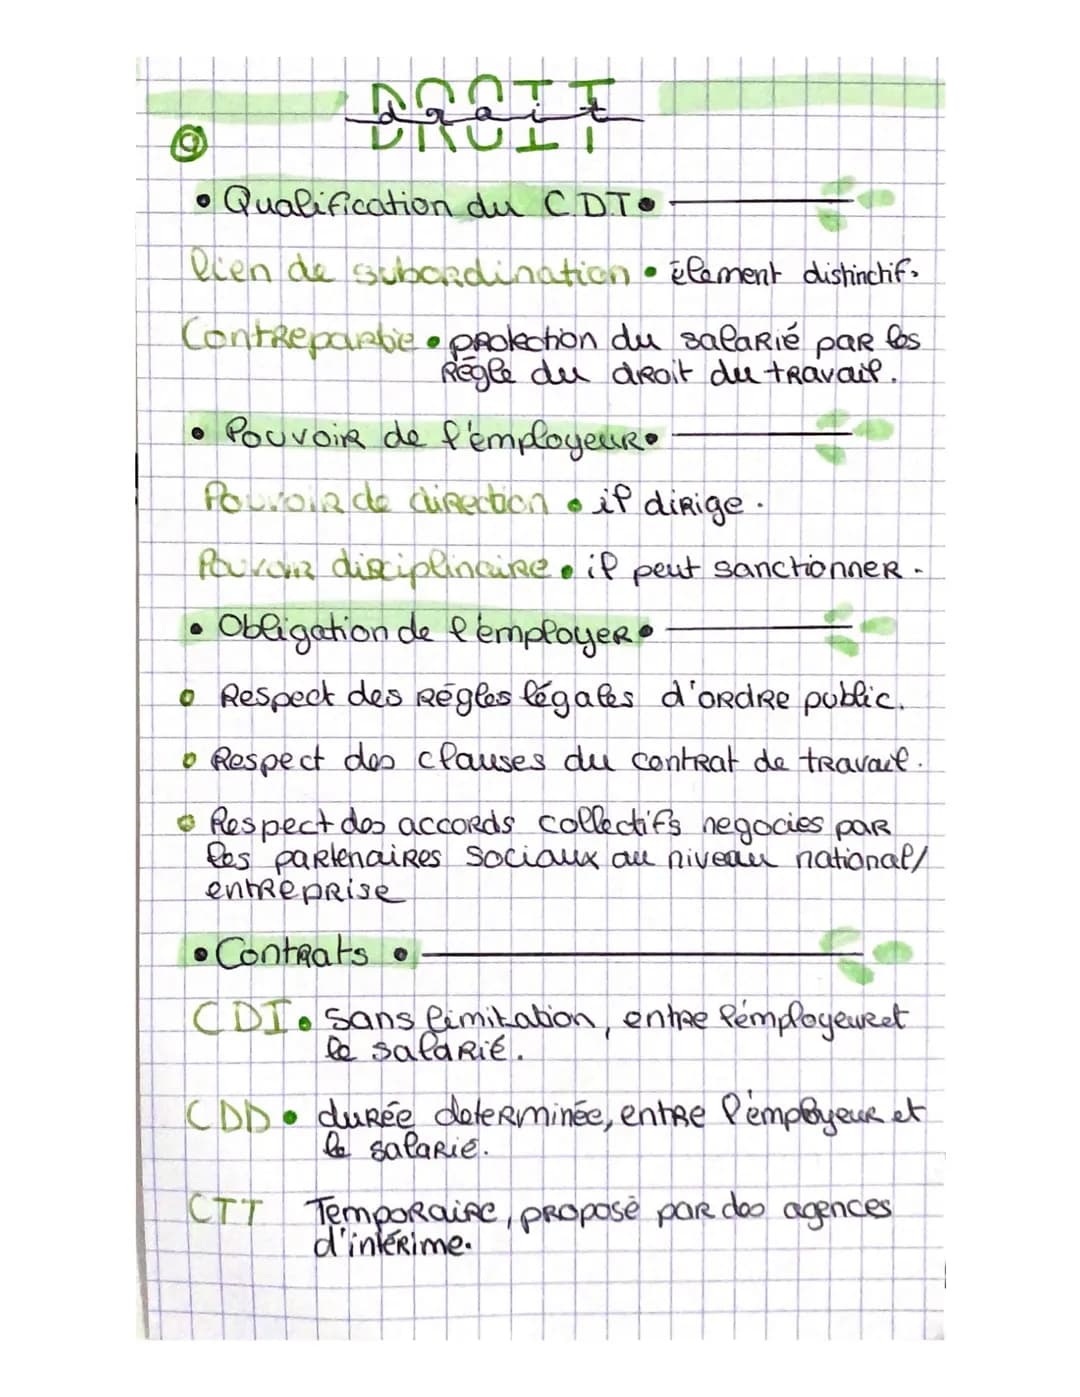 DROIT
droit
• Qualification du CDT •
lien de subordination • élement distinctif.
Contrepartie • protection du salarié par les
Régle du droit du travail.
• Pouvoir de l'émployeur •
Pouvoir de direction • il dirige.
Pouvoir disciplinaire • il peut sanctionner.
• Obligation de l'émployer •
• Respect des Régles légales d'ordre public.
• Respect des clauses du contrat de travail.
• Respect des accords collectifs negocies par
les partenaires sociaux au niveau national/
entreprise
• Contrats •
CDI • sans limitation, entre l'émployeur et
le salarié.
CDD • durée determinée, entre l'émployeur et
le salarié.
CTT Temporaire, proposé par des agences
d'intérime.